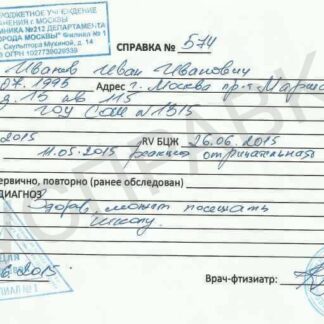 БЮДЖЕТНОЕ УЧРЕЖДЕНИЕ
АНЕНИЯ г. МОСКВЫ
ИНИКА №212 ДЕПАРТАМЕНТА
ГОРОДА МОСКВЫ" Филиал № 1
Скульптора Мухиной, д. 14
ОГРН 1027739029339
СПРАВКА № 574
Иванов Иван Иванович
07.1995 Адрес г. Москва пр-т Марша
д. 13 кв 115
ГОУ СОШ № 1315
2015 RV БЦЖ 26.06.2015
11.05.2015 реакция отрицательная
ервично, повторно (ранее обследован)
ДИАГНОЗ
Здоров, может посещать
школу.
2015
Врач-фтизиатр:
ДЛЯ
ФИЛИАЛ № 1